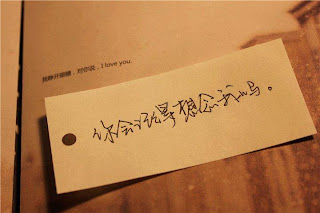 我睁开眼睛，对你说，I love you.
你会说是想念我吗。